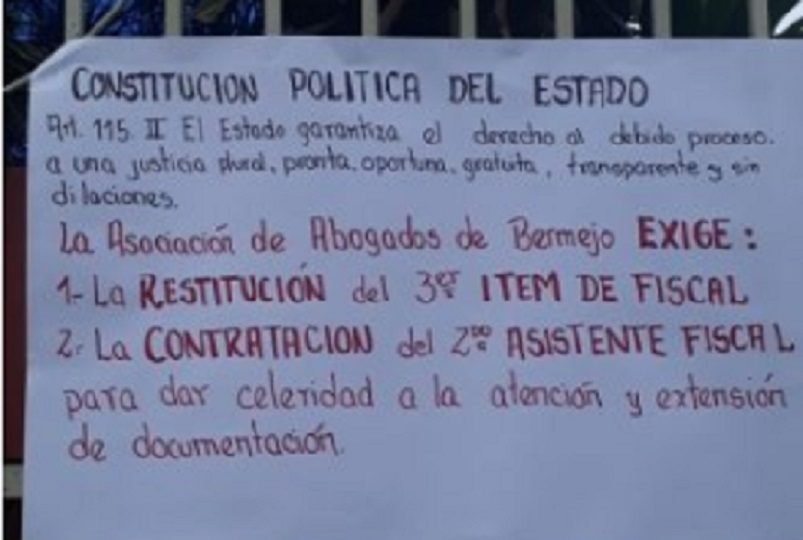 CONSTITUCION POLITICA DEL ESTADO
Art. 115 II El Estado garantiza el derecho al debido proceso.
a una justicia plural, pronta, oportuna, gratuita, transparente y sin
dilaciones.
La Asociación de Abogados de Bermejo EXIGE:
1- La RESTITUCIÓN del 3er ITEM DE FISCAL
2- La CONTRATACION del 2do ASISTENTE FISCAL
para dar celeridad a la atención y extensión
de documentación.